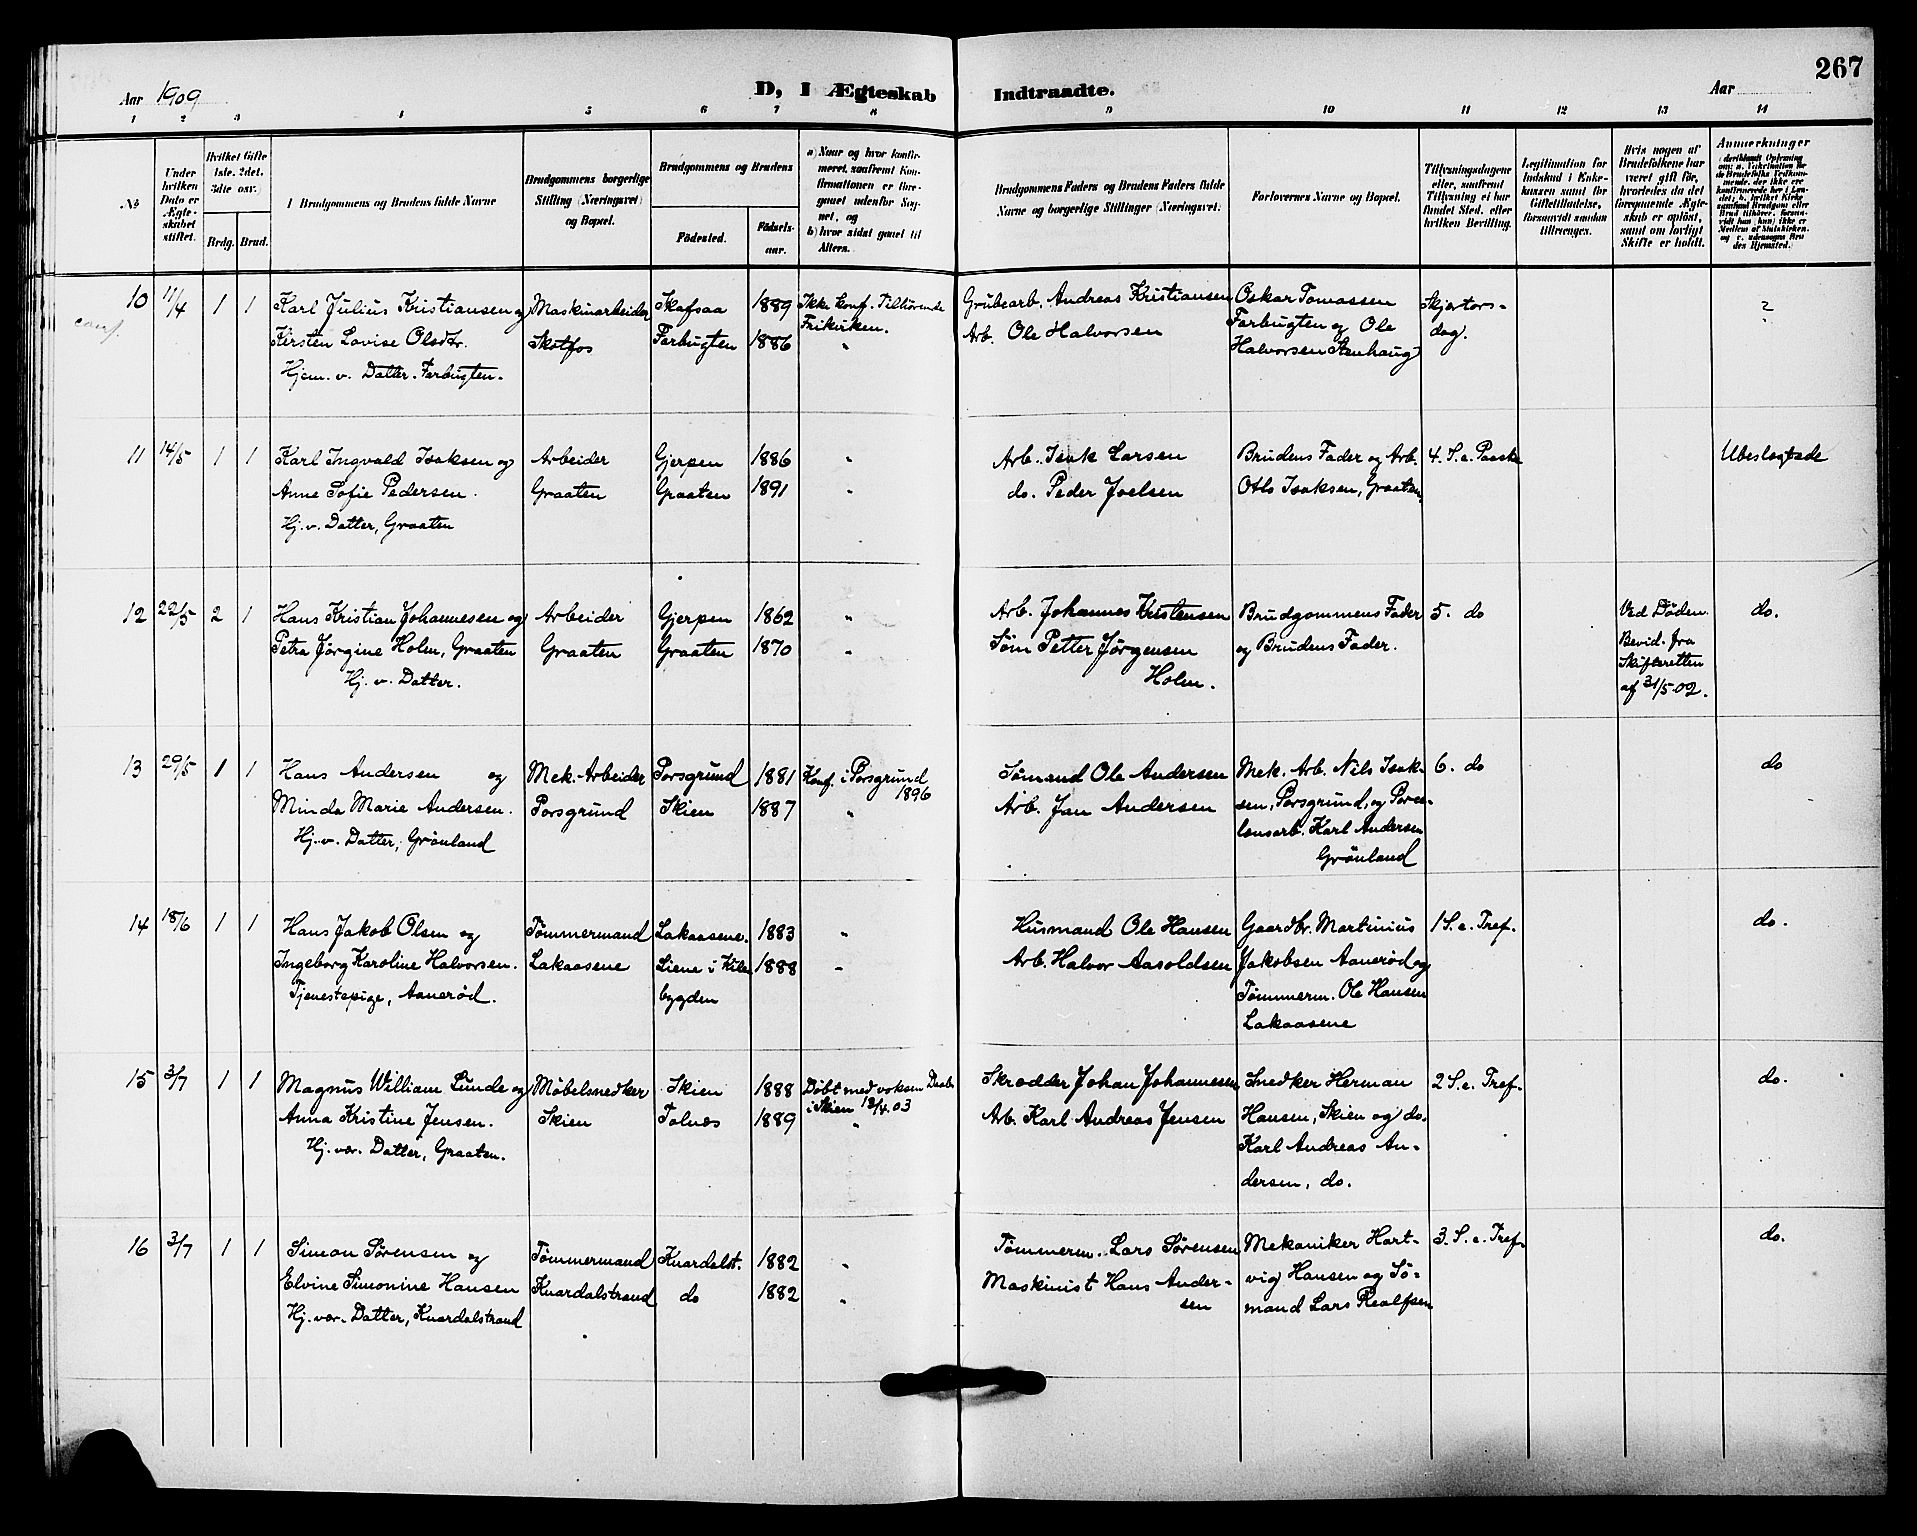 267
Aar 1909
D, I Ægteskab Indtraadte.
Aar
1 2 3 4 5 6 7 8 9 10 11 12 13 14
No
Under hvilken Dato er Ægteskabet stiftet.
Hvilket Gifte 1ste, 2det, 3die osv.
Brdg. Brud.
Brudgommens og Brudens fulde Navne
Brudgommens borgerlige Stilling (Næringsvei) og Bopæl.
Brudgommens og Brudens
Födested.
Födsels-aar.
a) Naar og hvor konfirmeret, saafremt Konfirmationen er foregaaet udenfor Sognet, og
b) hvor sidst gaaet til Alters.
Brudgommens Faders og Brudens Faders fulde Navne og borgerlige Stillinger (Næringsvei).
Forlovernes Navne og Bopæl.
Tillysningsdagene eller, saafremt Tillysning ei har fundet Sted, efter hvilken Bevilling.
Legitimation for Indskud i Enkekassen samt for Giftetilladelse, forsaavidt saadan tiltrænges.
Hvis nogen af Brudefolkene har været gift før, hvorledes da det foregaaende Ægteskab er oplöst, samt om lovligt Skifte er holdt.
Anmerkninger
10 11/4 1 1 Karl Julius Kristiansen og Maskinarbeider Skafsaa 1889 Ikke konf. Tilhörende Grubearb. Andreas Kristiansen Oskar Tomassen Skjærtors- ?
conf. Kirsten Lovise Olsdtr. Skotfos Farbugten 1886 Frikirken. Arb. Ole Halvorsen Farbugten og Ole dag.
Hjem. v. Datter. Farbugten. " Halvorsen Stenhaug
11 14/5 1 1 Karl Ingvald Isaksen og Arbeider Gjerpen 1886 " Arb. Isak Larsen Brudens Fader og Arb. 4. S. e. Paaske Ubeslægtede
Anne Sofie Pedersen. Graaten Graaten 1891 " do. Peder Joelsen Otto Isaksen, Graaten.
Hj. v. Datter, Graaten
12 22/5 2 1 Hans Kristian Johannesen og Arbeider Gjerpen 1862 " Arb. Johannes Kristensen Brudgommens Fader 5. do Ved Döden. do.
Petra Jørgine Holm, Graaten Graaten Graaten 1870 " Søm. Petter Jørgensen og Brudens Fader. Bevid. fra
Hj. v. Datter. Holm. Skifteretten
af 31/5 02.
13 29/5 1 1 Hans Andersen og Mek. Arbeider Porsgrund 1881 Konf. i Porsgrund Sømand Ole Andersen Mek. Arb. Nils Isak- 6. do do
Minda Marie Andersen. Porsgrund Skien 1887 1896 " Arb. Jan Andersen sen, Porsgrund, og Porce-
Hj. v. Datter, Grönland lænsarb. Karl Andersen
Grönland
14 18/6 1 1 Hans Jakob Olsen og Tömmermand Lakaasene. 1883 " Husmand Ole Hansen Gaardbr. Martinius 1 S. e. Tref. do.
Ingeborg Karoline Halvorsen. Lakaasene Liene i Kile- 1888 " Arb. Halvor Aasoldsen Jakobsen Aanerød og
Tjenestepige, Aanerød. bygden Tømmerm. Ole Hansen
Lakaasene
15 3/7 1 1 Magnus William Lunde og Möbelsnedker Skien 1888 Döbt med voksen Daab Skrædder Johan Johannesen Snedker Herman 2 S. e. Tref. do.
Anna Kristine Jensen. Skien Tolnæs 1889 i Skien 18/4.03 " Arb. Karl Andreas Jensen Hansen, Skien og do.
Hj. vær. Datter, Graaten. Karl Andreas An-
dersen, do.
16 3/7 1 1 Simon Sørensen og Tømmermand Knardalst. 1882 " Tömmerm. Lars Sørensen Mekaniker Hart- 3. S. e. Tref. do.
Elvine Simonine Hansen Knardalstrand do 1882 " Maskinist Hans Ander- vig Hansen og Sø-
Hj. vær. Datter, Knardalstrand sen mand Lars Realfsen